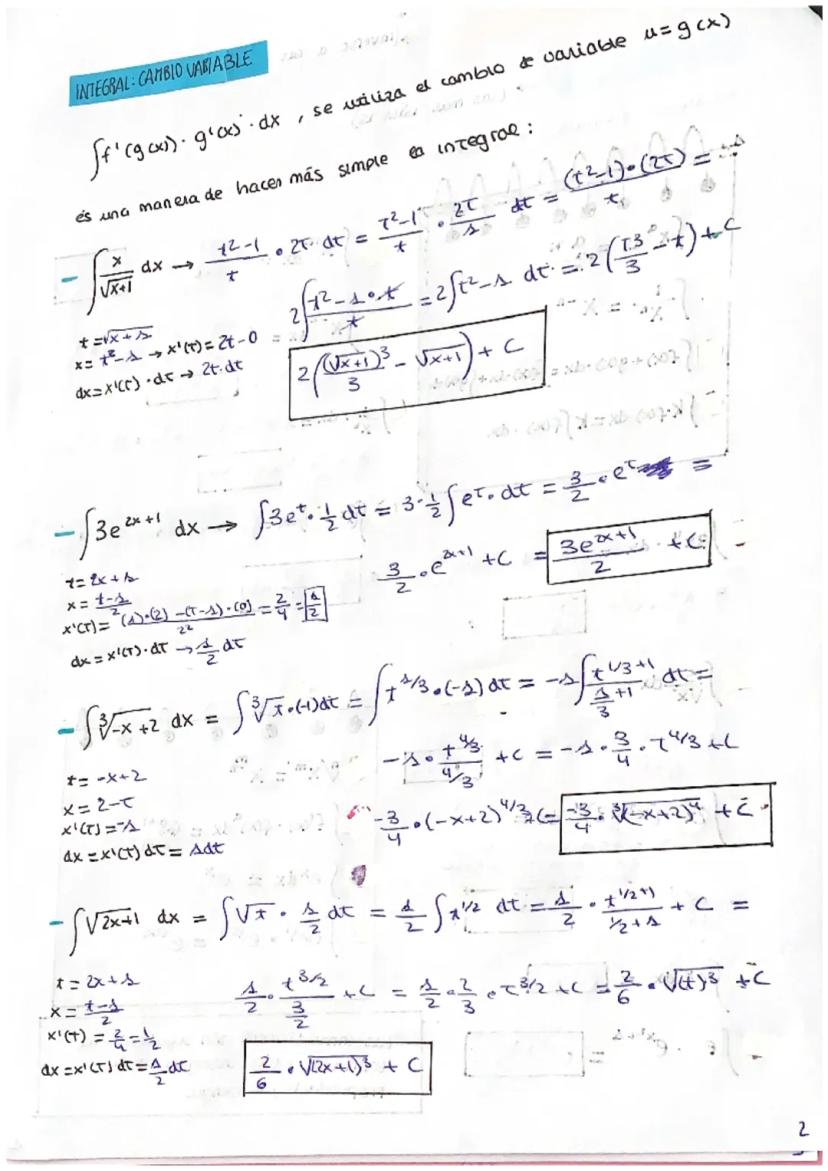 INTEGRAL: CAMBIO VARIABLE
∫f'(g(x)) · g'(x) · dx , se utiliza el cambio de variable u = g(x)
és una manera de hacer más simple la integral :
- ∫ x/√x+1 dx → t²-1/t · 2t · dt = t²-1/t · 2t/1 dt = (t²-1)·(2t)/t =
t = √x+1
x = t²-1 → x'(t) = 2t-0
dx = x'(t) · dt → 2t·dt
2∫ t²-1·t/t = 2∫t²-1 dt = 2(t3/3 - t) + C
2((√x+1)³/3 - √x+1) + C
- ∫3e^2x+1 dx → ∫3e^t · 1/2 dt = 3·1/2 ∫e^t · dt = 3/2 · e^t =
t = 2x+1
x = t-1/2
x'(t) = (1)·(2)-(t-1)·(0)/2² = 2/4 = 1/2
dx = x'(t)·dt → 1/2 dt
3/2 · e^2x+1 + C = 3e^2x+1/2 + C
- ∫∛-x+2 dx = ∫∛t·(-1)dt = ∫t^1/3·(-1) dt = -1∫ t^1/3+1/1/3+1 dt =
t = -x+2
x = 2-t
x'(t) = -1
dx = x'(t) dt = 1dt
-1 · t^4/3/4/3 + C = -1 · 3/4 · t^4/3 + C
-3/4 · (-x+2)^4/3 + C = -3/4 · ∛(-x+2)⁴ + C
- ∫√2x+1 dx = ∫√t · 1/2 dt = 1/2 ∫t^1/2 dt = 1/2 · t^1/2+1/1/2+1 + C =
t = 2x+1
x = t-1/2
x'(t) = 2/4 = 1/2
dx = x'(t) dt = 1/2 dt
1/2 · t^3/2/3/2 + C = 1/2 · 2/3 · t^3/2 + C = 2/6 · √(t)³ + C
2/6 · √(2x+1)³ + C
2